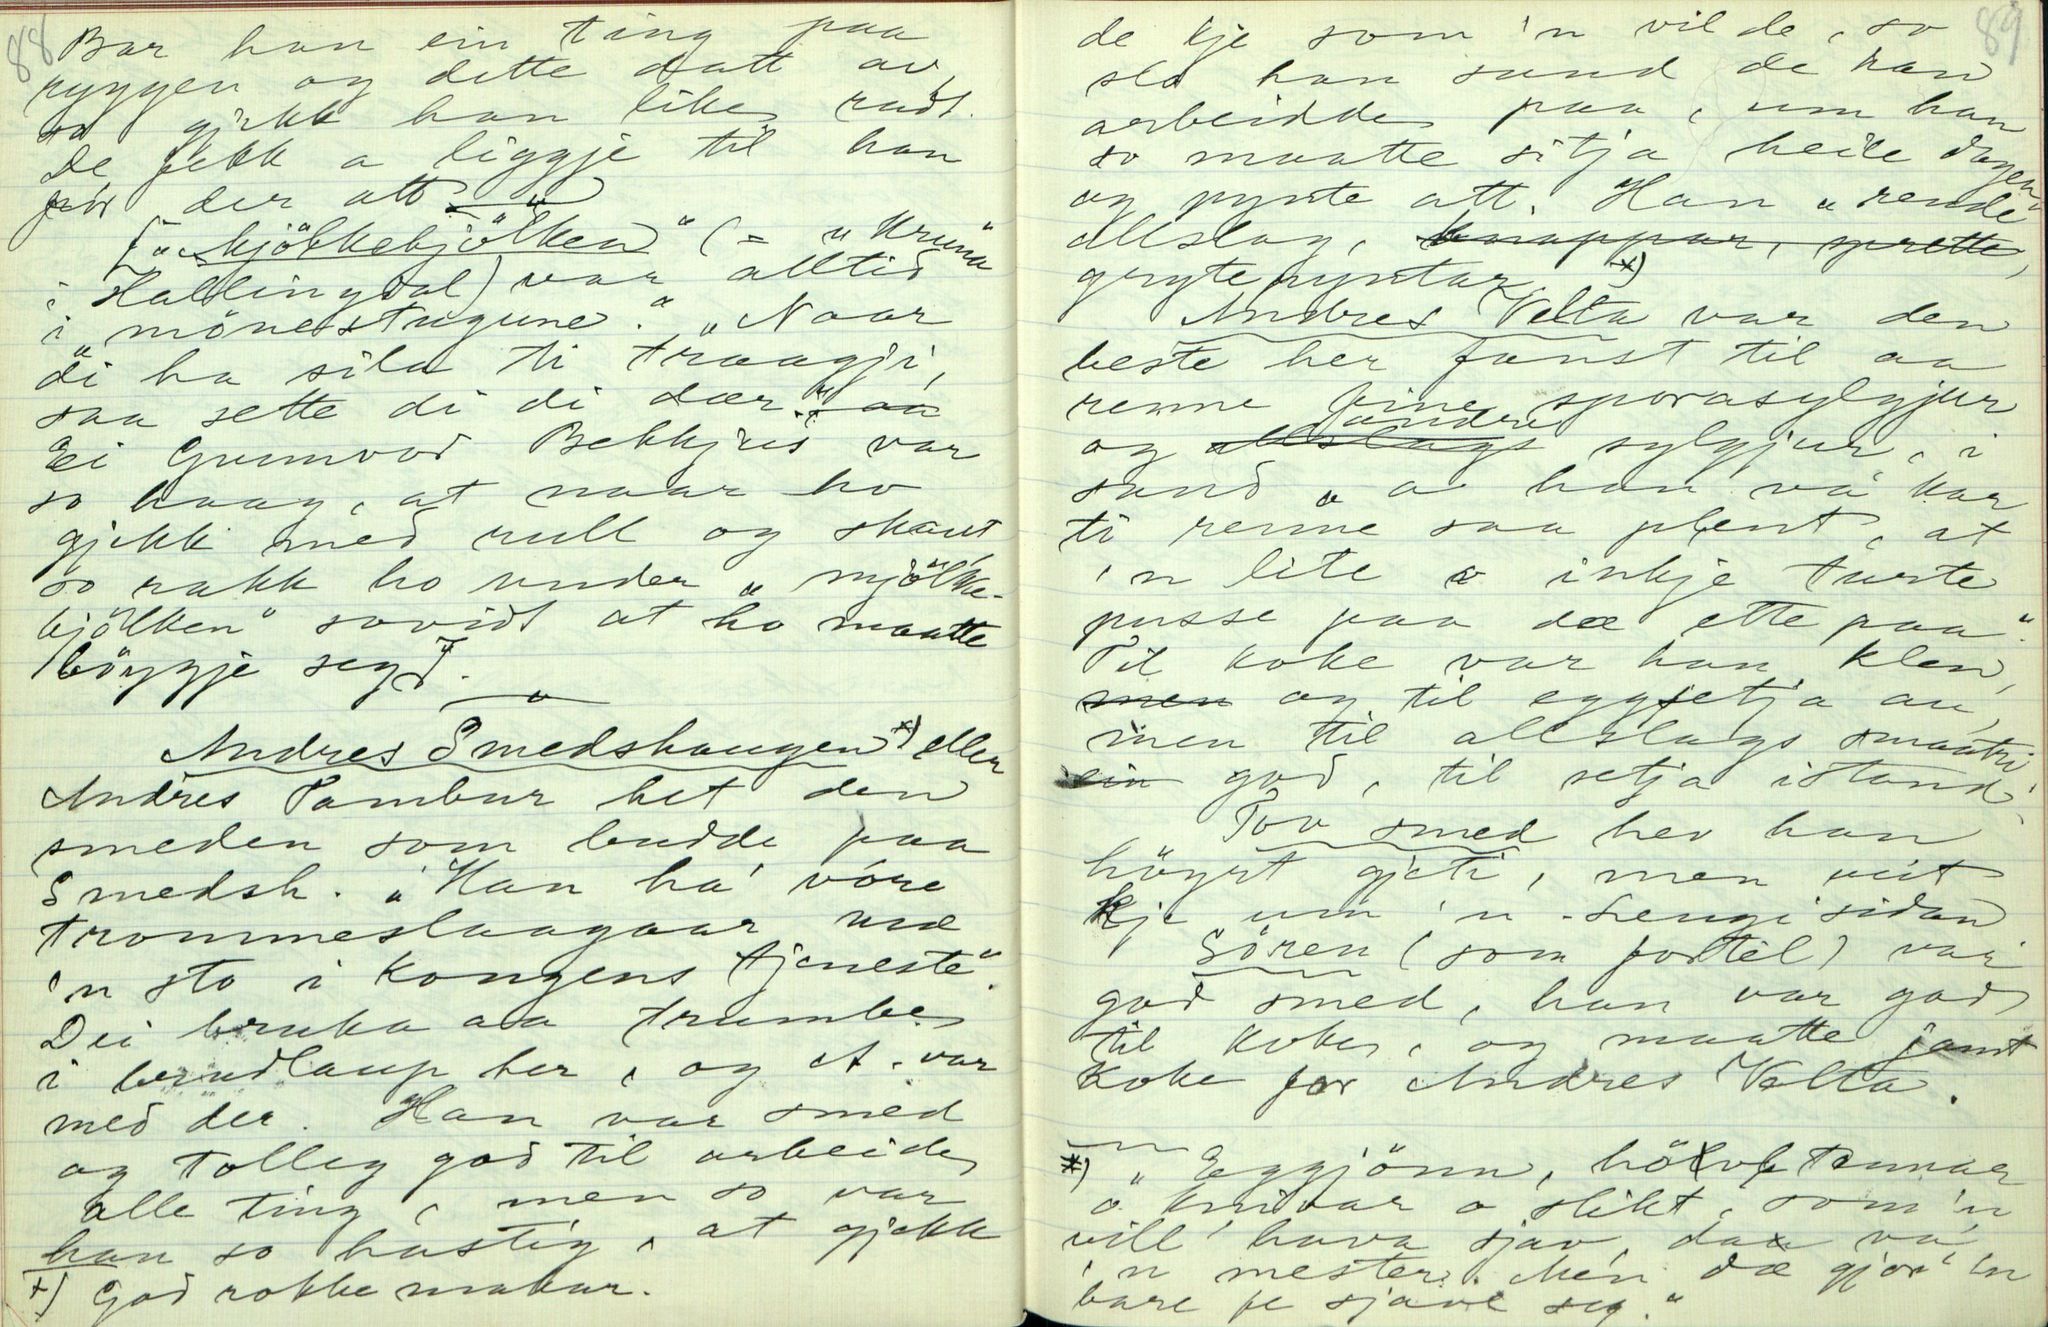 88
Bar han ein ting paa
ryggen og dette datt av,
so gjekk han likes radt.
De fekk a liggje til han
for der att
["Kjökkebjölken" (= "Krun"
i Hallingdal) var alltid
i "mönestugune." "Naar
di ha sila ti traagji,
saa sette di di dær."
Ei Gunnvor Bekkjies var
so haag, at naar ho
gjekk med rull og skaut
so rakk ho under "mjölke-
bjölken" sovidt at ho maatte
böyggje seg].
Andres Smedshaugen *) eller
Andres Tambur het den
smeden som budde paa
Smedsh. "Han ha' vóre
trommeslaagaar mæ
'n sto i kongens tjeneste".
Dei bruka aa trumbe
i brudlaup her, og A. var
med der. Han var smed
og tolleg god til arbeide
alle ting, men so var
han so hastig, at gjekk
*) God rokkemakar.
89
de kje som 'n vilde, so
slo han sund de han
arbeidde paa, um han
so maatte sitja heile dagen
og pynte att. Han "rende"
allslag, knappar, sprette,
gryte pyntar *)
Andres Velta var den
beste her fanst til aa
renne fine sporasylgjur
og allslags andre sylgjur, i
sand "o han va' kar
ti renne saa plent, at
'n lite o inkje turte
pusse paa dæ ette paa".
Til koke var han klen,
men og til eggsetja au,
men til allslags smaatri
ein god, til setja istand.
Tov smed hev han
höyrt gjeti, men veit
kje um 'n - Lengi sidan
Sören (som fortel) var
god smed, han var god
til koke, og maatte jamt
koke for Andres Velta.
*) "Eggjönn, hölvetannar
o knivar o slikt, som 'n
vill' hava sjav, dæ va'
'n mester. Men dæ gjor' 'n
bare fe sjave seg."